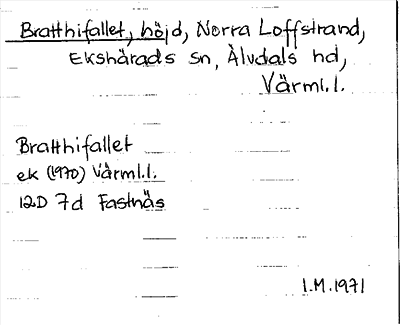 Bratthifallet, höjd, Norra Loffstrand,
Ekshärads sn, Älvdals hd,
Värml.l.
Bratthifallet
ek (1970) Värml.l.
12D 7d Fastnäs
I.M.1971